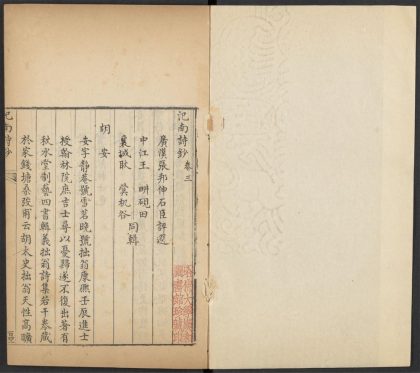 汜南詩鈔 卷三
廣漢張邦伸石臣評選
中江王 畊硯田
襄城耿 蓂枇谷
同輯
胡安
安字靜菴號雪茗晚號拙翁康熙壬辰進士
授翰林院庶吉士尋以憂歸遂不復出著有
秋水堂制藝四書輯義拙翁詩集若干卷藏
於家錢塘桑弢甫云胡太史拙翁天性高曠
汜南詩鈔